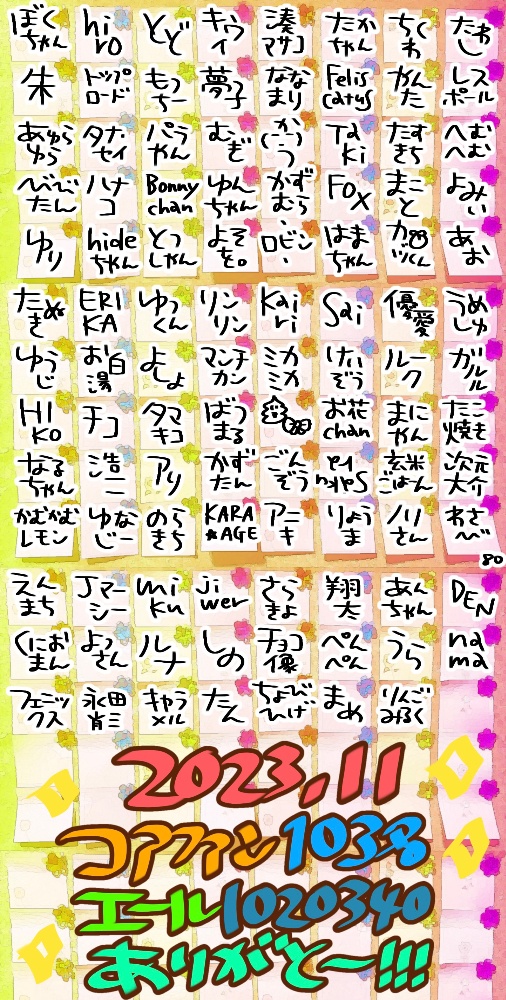 ぼくちゃん hiro とど キウイ 湊マサコ たかちゃん ちくわ たわし
朱 トップロード もっちー 夢子 ななまり Feliscatus かんた レスポール
あゅらゅら タナセイ パラやん むぎ (かつ)う Taki たすきち へむへむ
べびたん ハナコ Bonnychan ゆんちゃん かずむら FOX まこと よみぃ
ゆり hideちゃん とっしゃん よそを。 ロビン、 はまちゃん ガッツくん あお
たぬき ERIKA ゆっくん リンリン Kairi Sai 優愛 うめしゅ
ゆうじ お白湯 よしょ マンチカン ミカミカ けいぞう ルーク ガルル
HIKO チコ タマキコ ばうまる お花chan まにゃん たこ焼き
なるちゃん 浩二 アリ かずたん ごんぞう 玄米ごはーん 次元大介
かむかむレモン ゆなじー のらきち KARA★AGE アニキ りょうま ノリさん わさべ
80
えんまち Jマーシー miku jiwer さらきよ 翔太 あんちゃん DEN
くにおまん よっさん ルナ しの チョコ像 ぺんぺん うら nama
フェニックス 永田肖三 キャラメル たん ちょびひげ まめ りんごみるく
2023.11
コアファン103名
エール1020340
ありがとー!!!